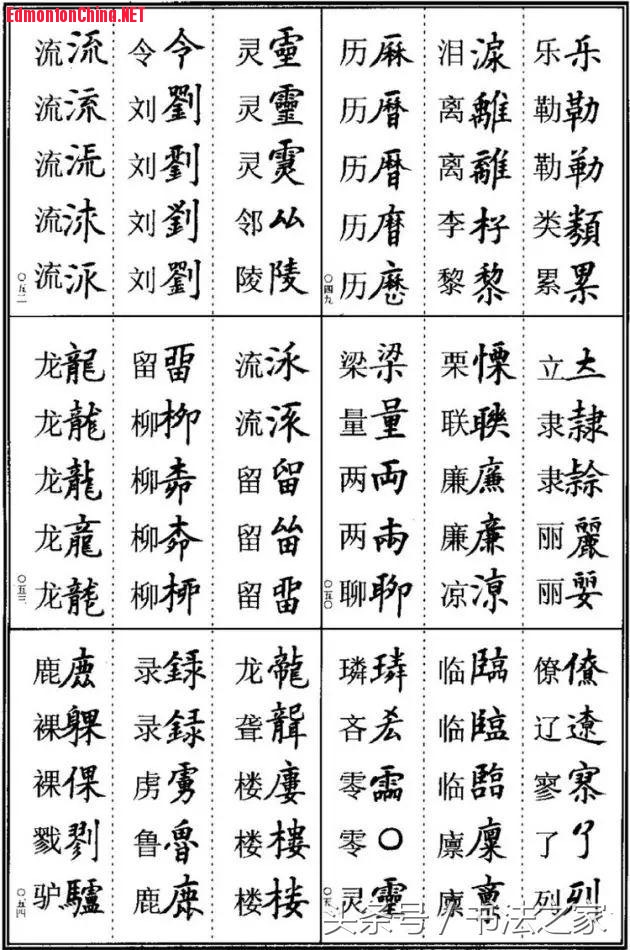 EdmontonChina.NET
乐乐 勒勒 勒勒 类類 累累
泪淚 离離 离離 李杍 黎黎
历厤 历曆 历曆 历 历歷
〇四九
立 隶隸 隶 丽麗 丽
栗慄 联聯 廉廉 廉廉 凉凉
梁梁 量量 两両 两兩 聊聊
〇五〇
僚僚 辽遼 寥 了了 列列
临臨 临臨 临臨 廪廩 廪
璘璘 吝 零霝 零〇 灵靈
〇五
灵靈 灵靈 灵 邻厸 陵陵
令令 刘劉 刘劉 刘劉 刘劉
流流 流流 流 流 流
〇五二
流 流 留留 留 留畱
留畱 柳柳 柳 柳 柳
龙龍 龙龍 龙龍 龙龍 龙龍
〇五三
龙龍 聋聾 楼廔 楼樓 楼楼
录録 录録 虏虜 鲁魯 鹿鹿
鹿鹿 裸躶 裸倮 戮剹 驴驢
〇五四
头条号／书法之家